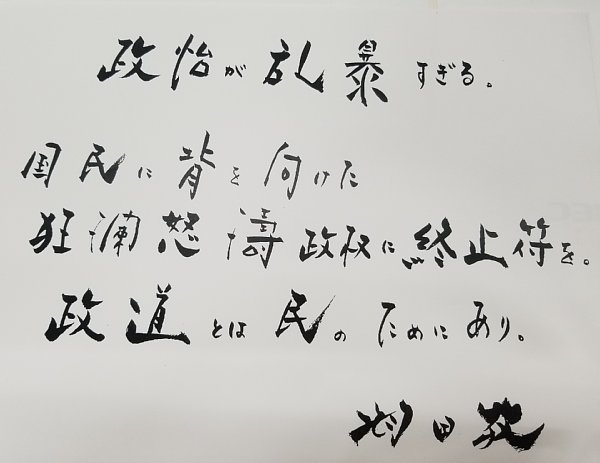 政治が乱暴すぎる。
国民に背を向けた
狂瀾怒濤政权に終止符を。
政道とは民のためにあり。
羽田孜